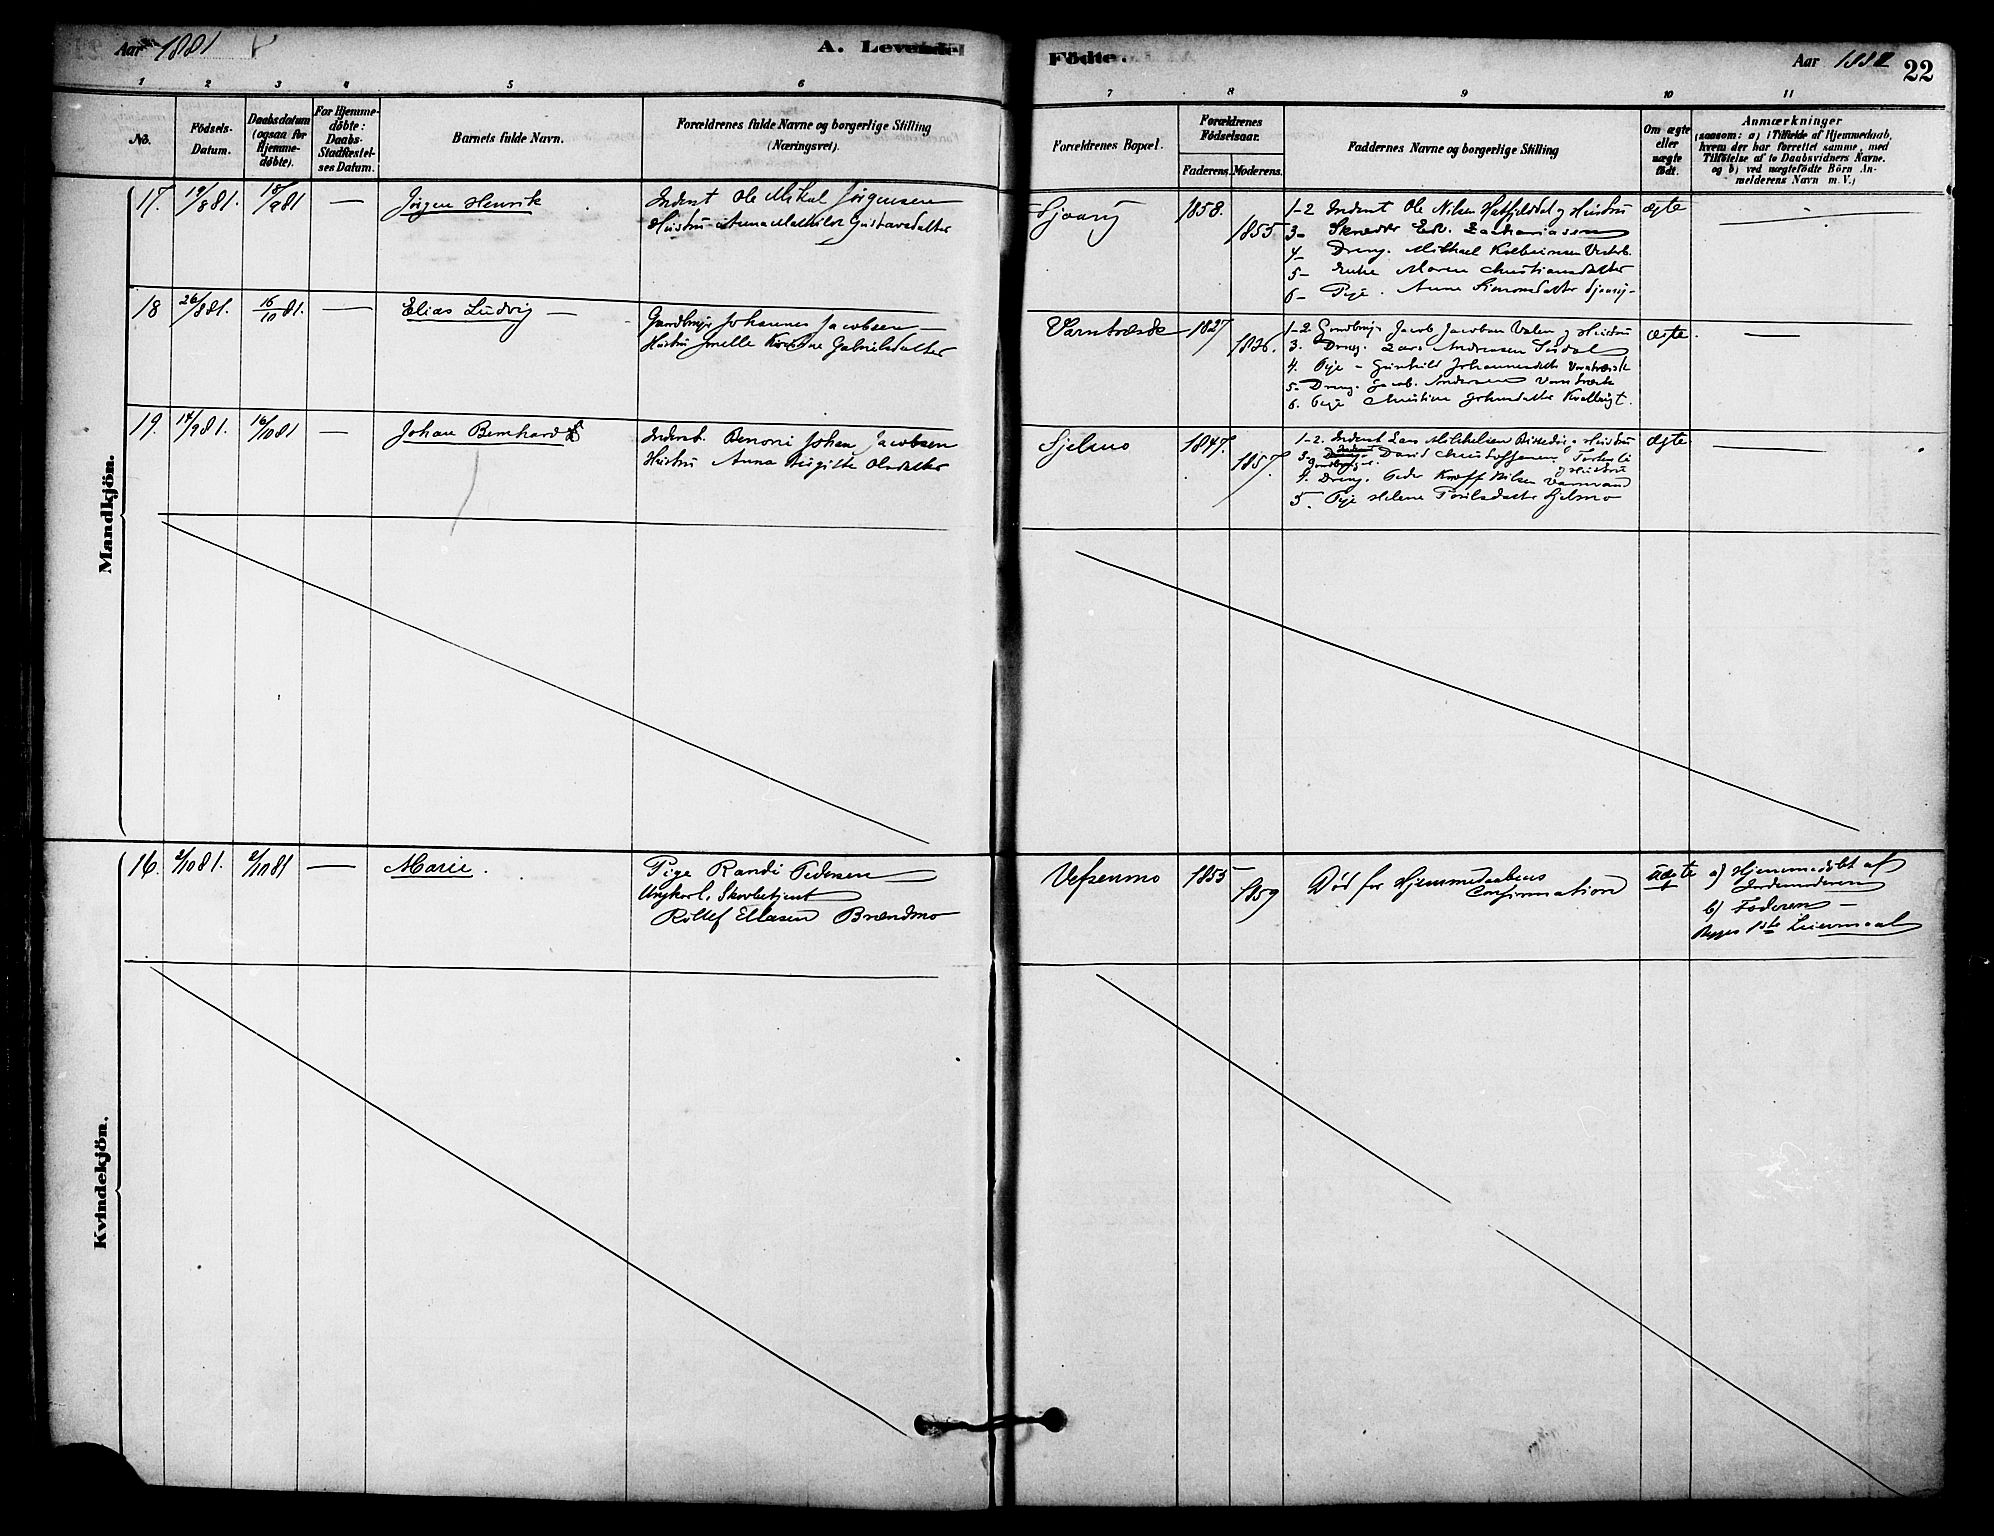 Aar 1881
A. Levende
Födte.
Aar 1881
22
1 2 3 4 5 6 7 8 9 10 11
No.
Födsels-
Datum.
Daabsdatum
(ogsaa for
Hjemme-
döbte).
For Hjemme-
döbte:
Daabs-
Stadfæstel-
ses Datum.
Barnets fulde Navn.
Forældrenes fulde Navne og borgerlige Stilling
(Næringsvei).
Forældrenes Bopæl.
Forældrenes
Födselsaar.
Faderens. Moderens.
Faddernes Navne og borgerlige Stilling
Om ægte
eller
uægte
födt.
Anmærkninger
(saasom: a) i Tilfælde af Hjemmedaab,
hvem der har forrettet samme, med
Tilföielse af to Daabsvidners Navne.
og b) ved uægtefödte Börn An-
melderens Navn m. V.)
Mandkjön.
17. 19/8 81. 18/9 81 — Jørgen Henrik
Inderst Ole Mikal Jørgensen
Hustru Anna Mathilde Gustavsdatter
1858.
1855
1-2 Inderst Ole Nilsen Hatfjelddal og Hustru
3- Skrædder Edv. Zachariassen
4- Dreng. Michael
5- Enke Maren Christiansdatter
6- Pige. Anne Simonsdatter
ægte
18 26/8 81. 16/10 81. — Elias Ludvig —
Gaardbruger Johannes Jacobsen —
Hustru Gabrielsdatter
Varntræsk 1827
1836.
1-2. Gaardbruger Jacob Jacobsen Valen og Hustru
3. Dreng. Lars Andreassen
4. Pige - Gunhild Johannesdatter Varntræsk
5- Dreng. Jacob. Andersen Varntræsk
6. Pige Christine
ægte. —
19. 14/9 81. 16/10 81 — Johan Bernhard
Inderst. Benoni Johan Jacobsen
Hustru Anna Birgitte Olsdatter
Sjelmo 1847.
1857.
1-2. Inderst Lars Mikkelsen og Hustru
3- David Christoffersen
Gaardbruger og Hustru
4. Dreng. Peder
5. Pige Helene
ægte —
Kvindekjön.
16. 2/10 81. 2/10 81 — Marie.
Pige Randi Pedersen
Ungkarl, Skovbetjent
Rollef Ellasen Brændmo
Vefsenmo 1855
1859
Død før Hjemmedaabens
Confirmation
uægte
a) Hjemmedøbt af
Jordemoderen
b) Faderen —
Begges 1ste Leiermaal